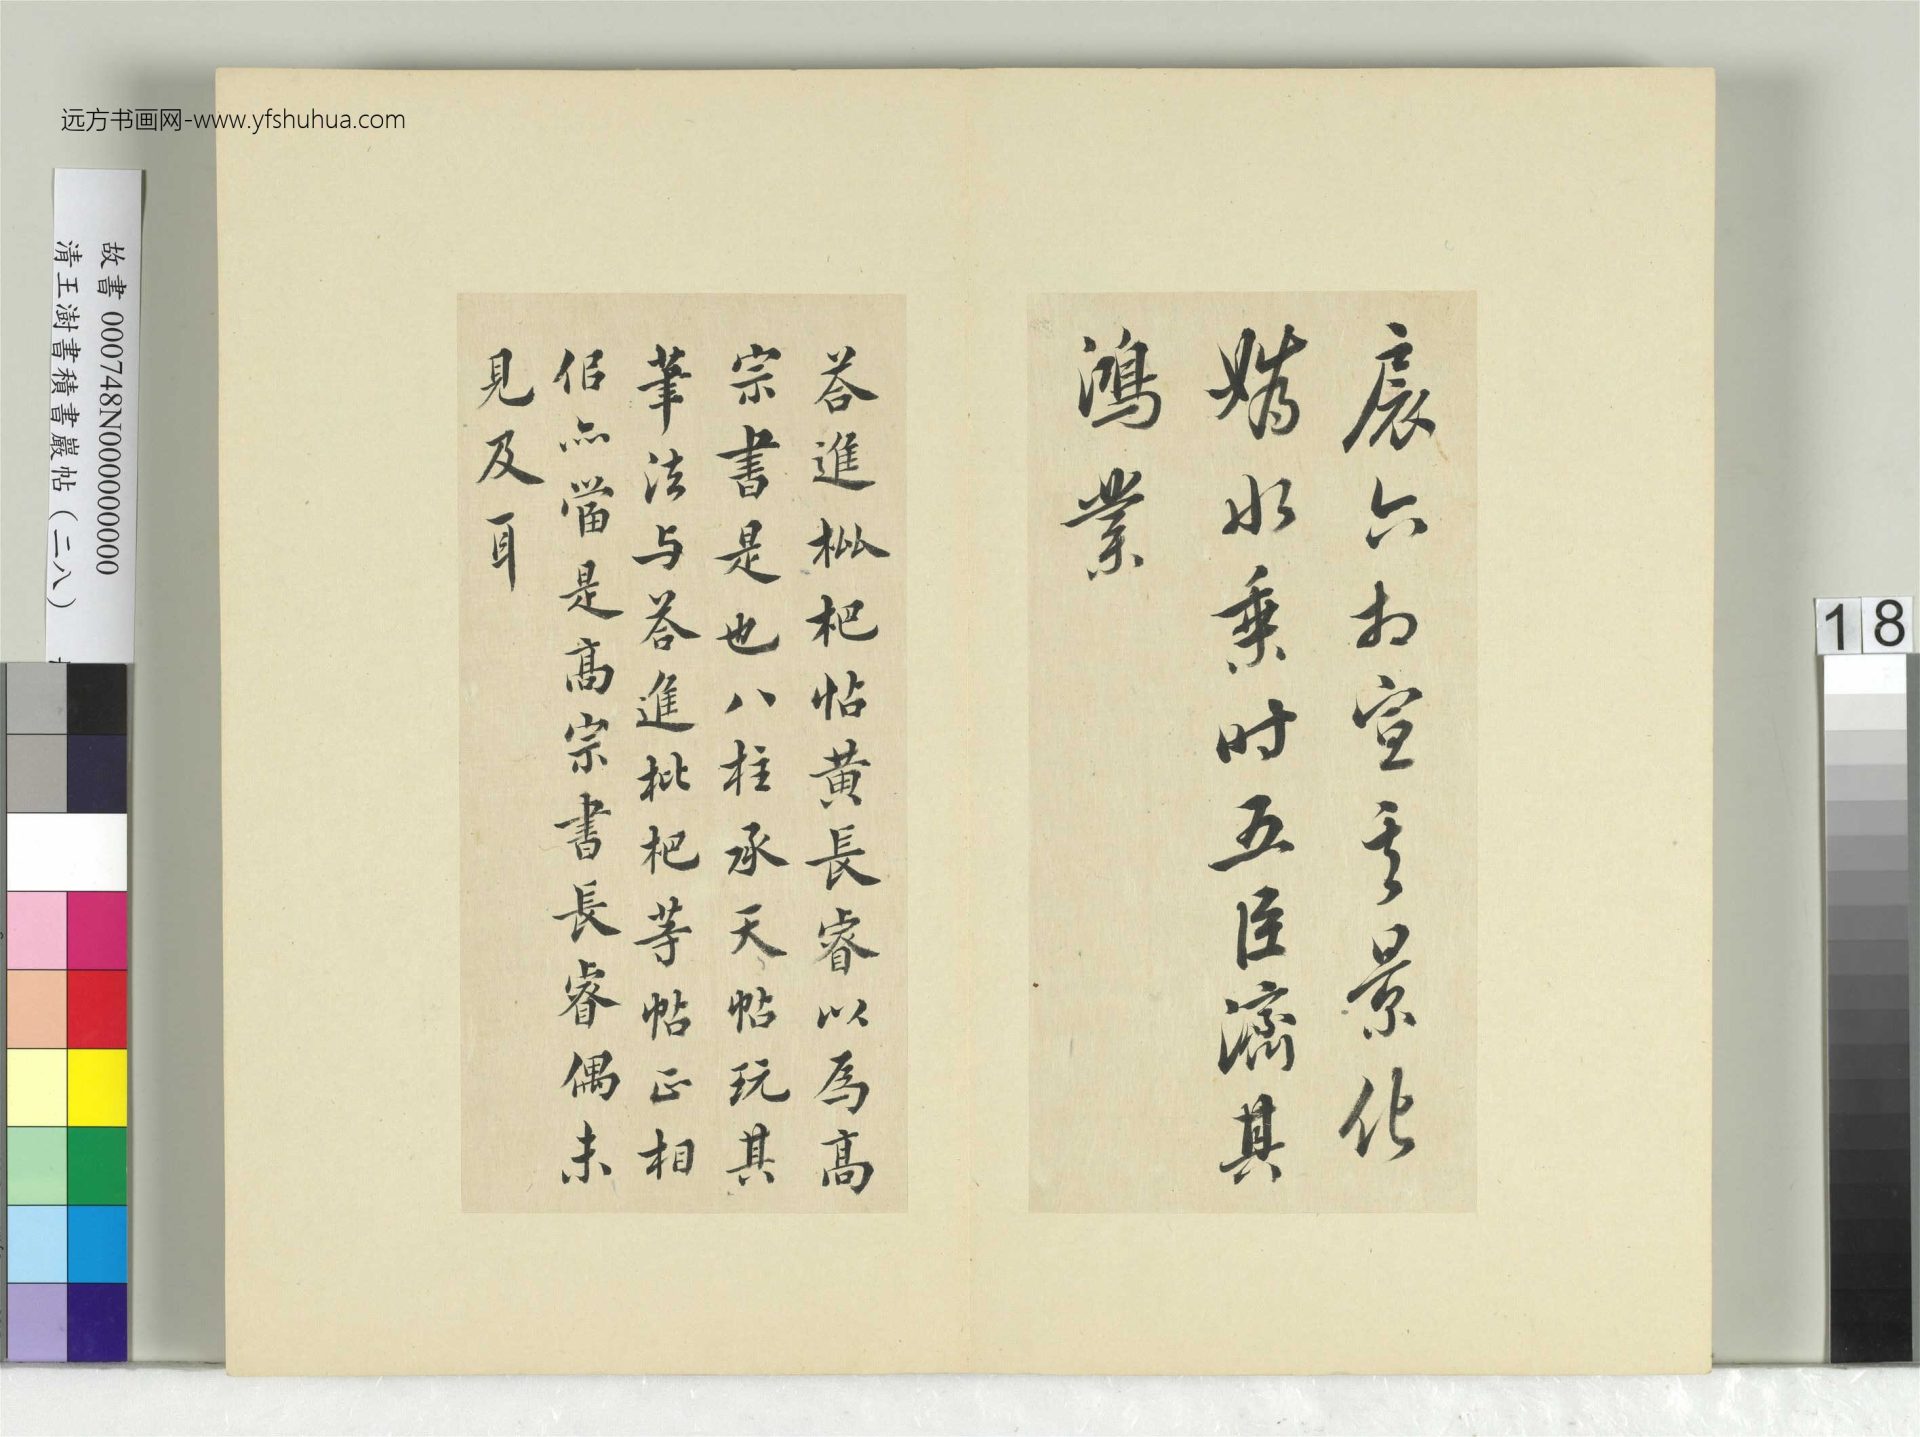 远方书画网-www.yfshuhua.com
故書 000748N000000000
清王澍書積書巖帖（二八）
18
扆六相宣其景化
嬀水乘时五臣濟其
鴻業
荅進枇杷帖黄長睿以為高
宗書是也八柱承天帖玩其
筆法与荅進枇杷等帖正相
佀亦當是高宗書長睿偶未
見及耳